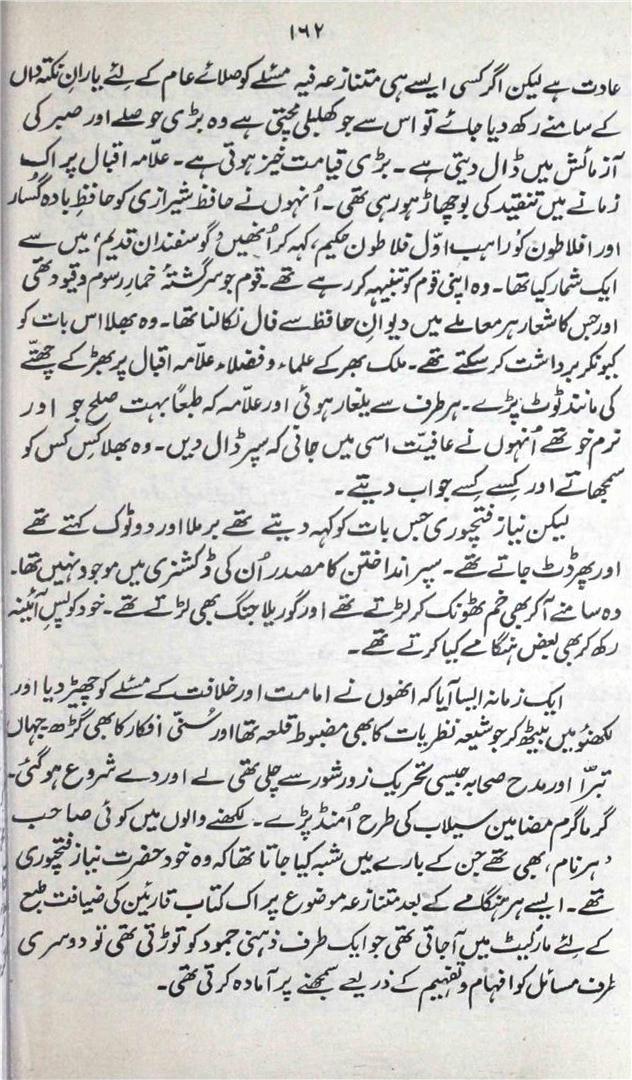 ۱۶۲
عادت ہے لیکن اگر کسی ایسے ہی متنازعہ فیہ مسئلے کو صلائے عام کے لئے یارانِ نکتہ داں
کے سامنے رکھ دیا جائے تو اس سے جو کھلبلی مچتی ہے وہ بڑی حوصلے اور صبر کی
آزمائش میں ڈال دیتی ہے ۔ بڑی قیامت خیز ہوتی ہے ۔ علّامہ اقبال پر اک
زمانے میں تنقید کی بوچھاڑ ہو رہی تھی ۔ اُنہوں نے حافظ شیرازی کو حافظِ بادہ گُسار
اور افلاطون کو راہب اوّل فلاطون حکیم، کہہ کر اُنھیں 'گوسفندان قدیم' میں سے
ایک شمار کیا تھا ۔ وہ اپنی قوم کو تنبیہہ کر رہے تھے ۔ قوم جو سرگشتۂ خمارِ رسوم و قیود تھی
اور جس کا شعار ہر معاملے میں دیوانِ حافظ سے فال نکالنا تھا ۔ وہ بھلا اس بات کو
کیونکر برداشت کر سکتے تھے ۔ ملک بھر کے علماء و فضلاء علّامہ اقبال پر بھڑ کے چھتّے
کی مانند ٹوٹ پڑے ۔ ہر طرف سے یلغار ہوئی اور علّامہ کہ طبعاً بہت صلح جو اور
نرم خو تھے اُنہوں نے عافیّت اسی میں جانی کہ سپر ڈال دیں ۔ وہ بھلا کِس کِس کو
سمجھاتے اور کِسے کِسے جواب دیتے ۔
لیکن نیاز فتحپوری جس بات کو کہہ دیتے تھے برملا اور دو ٹوک کہتے تھے
اور پھر ڈٹ جاتے تھے ۔ سپر انداختن کا مصدر اُن کی ڈکشنری میں موجود نہیں تھا ۔
وہ سامنے آ کر بھی خم ٹھونک کر لڑتے تھے اور گوریلا جنگ بھی لڑتے تھے ۔ خود کو پسِ آئینہ
رکھ کر بھی بعض ہنگامے کیا کرتے تھے ۔
ایک زمانہ ایسا آیا کہ انھوں نے امامت اور خلافت کے مسئلے کو چھیڑ دیا اور
لکھنؤ میں بیٹھ کر جو شیعہ نظریات کا بھی مضبوط قلعہ تھا اور سُنّی افکار کا بھی گڑھ جہاں
تبرّا اور مدح صحابہ جیسی تحریک زور شور سے چلی تھی لے اور دے شروع ہو گئی ۔
گرما گرم مضامین سیلاب کی طرح اُمنڈ پڑے ۔ لکھنے والوں میں کوئی صاحب
'ہرنام' بھی تھے جن کے بارے میں شبہ کیا جاتا تھا کہ وہ خود حضرت نیاز فتحپوری
تھے ۔ ایسے ہر ہنگامے کے بعد متنازعہ موضوع پر اک کتاب قارئین کی ضیافت طبع
کے لئے مارکیٹ میں آ جاتی تھی جو ایک طرف ذہنی جمود کو توڑتی تھی تو دوسری
طرف مسائل کو افہام و تفہیم کے ذریعے سمجھنے پر آمادہ کرتی تھی ۔